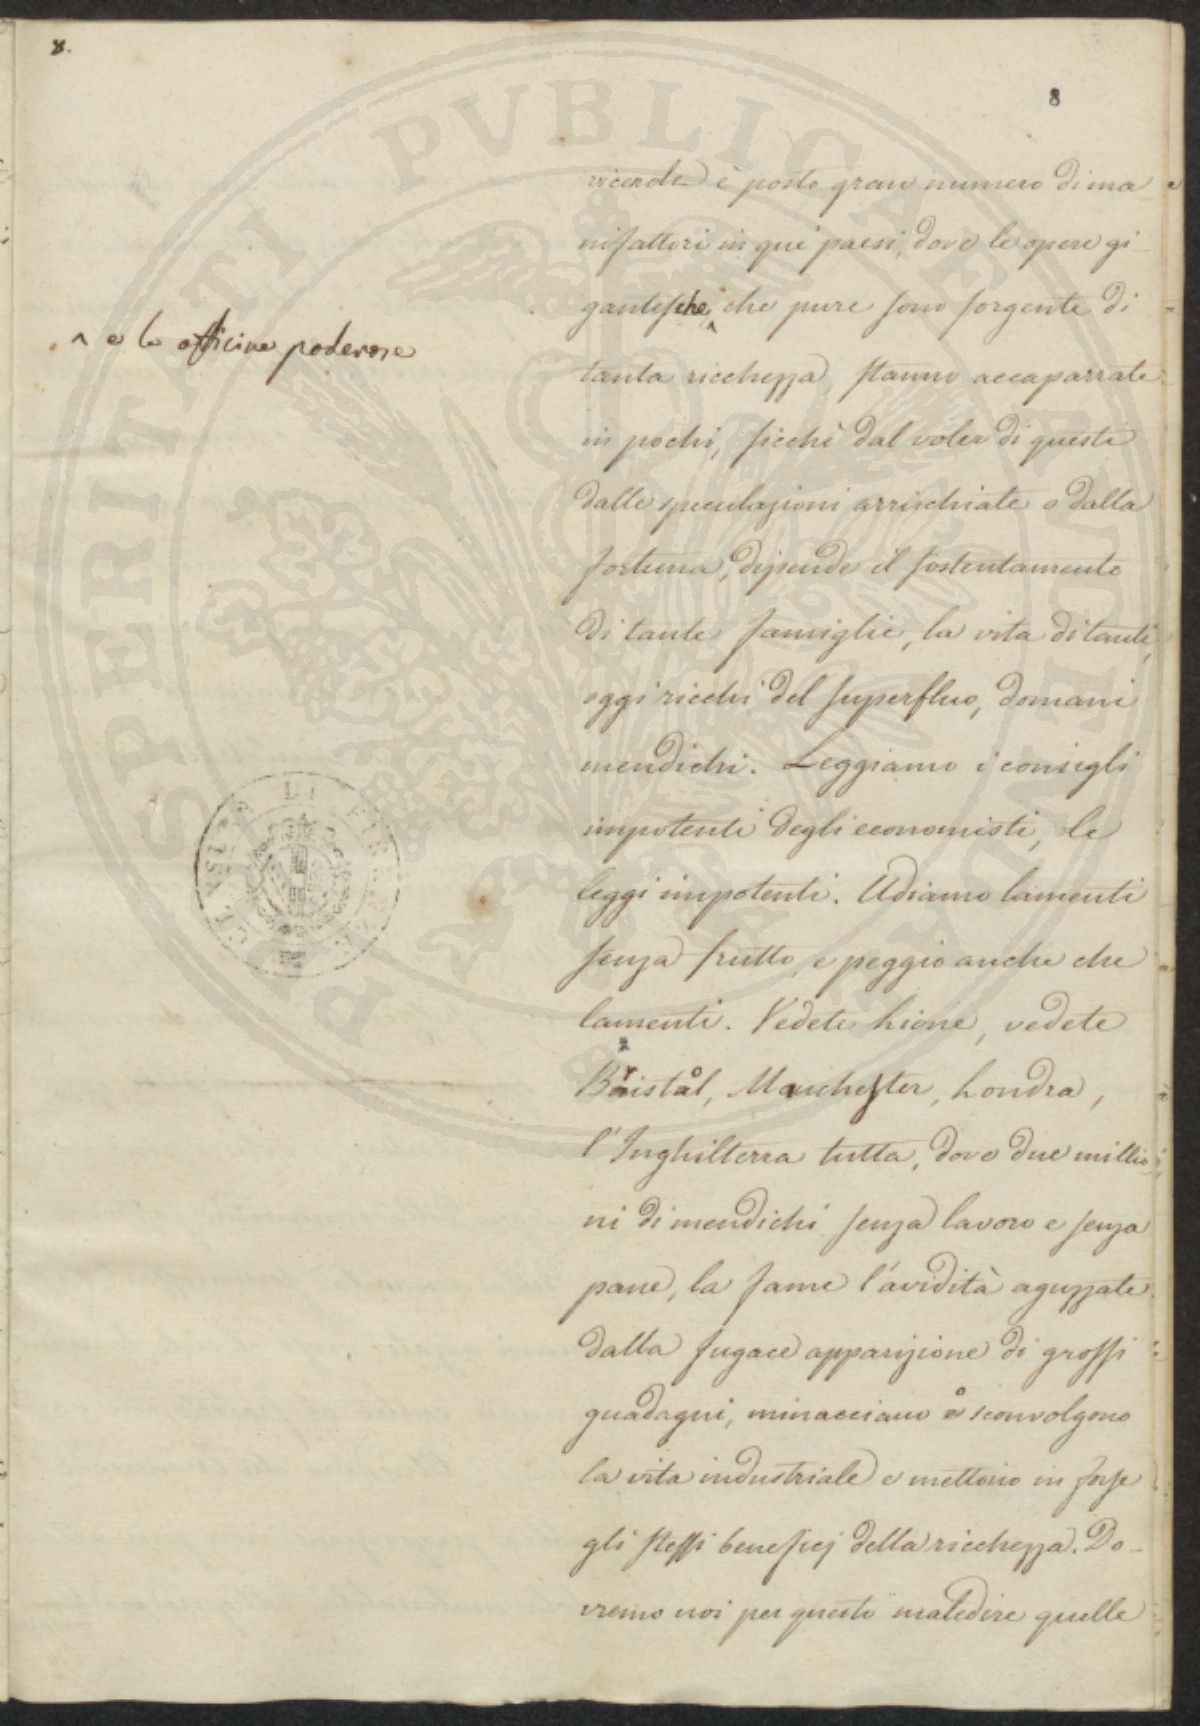 8.
8
vicende è posto gran numero di ma-
nifattori in que' paesi, dove le opere gi-
gantesche ^ che pure sono sorgente di
^ e le officine poderose
tanta ricchezza, stanno accaparrate
in pochi, sicchè dal voler di questi
dalle speculazioni arrischiate o dalla
fortuna, dipende il sostentamento
di tante famiglie, la vita di tanti,
oggi ricchi del superfluo, domani
mendichi. Leggiamo i consigli
impotenti degli economisti, le
leggi impotenti. Udiamo lamenti
senza frutto, e peggio anche che
lamenti. Vedete Lione, vedete
Bristol, Manchester, Londra,
l'Inghilterra tutta, dove due millio-
ni di mendichi senza lavoro e senza
pane, la fame l'avidità aguzzate
dalla fugace apparizione di grossi
guadagni, minacciano o sconvolgono
la vita industriale e mettono in forse
gli stessi beneficj della ricchezza. Do-
vremo noi per questo maledire quelle
PROSPERITATI PVBLICAE AVGENDAE